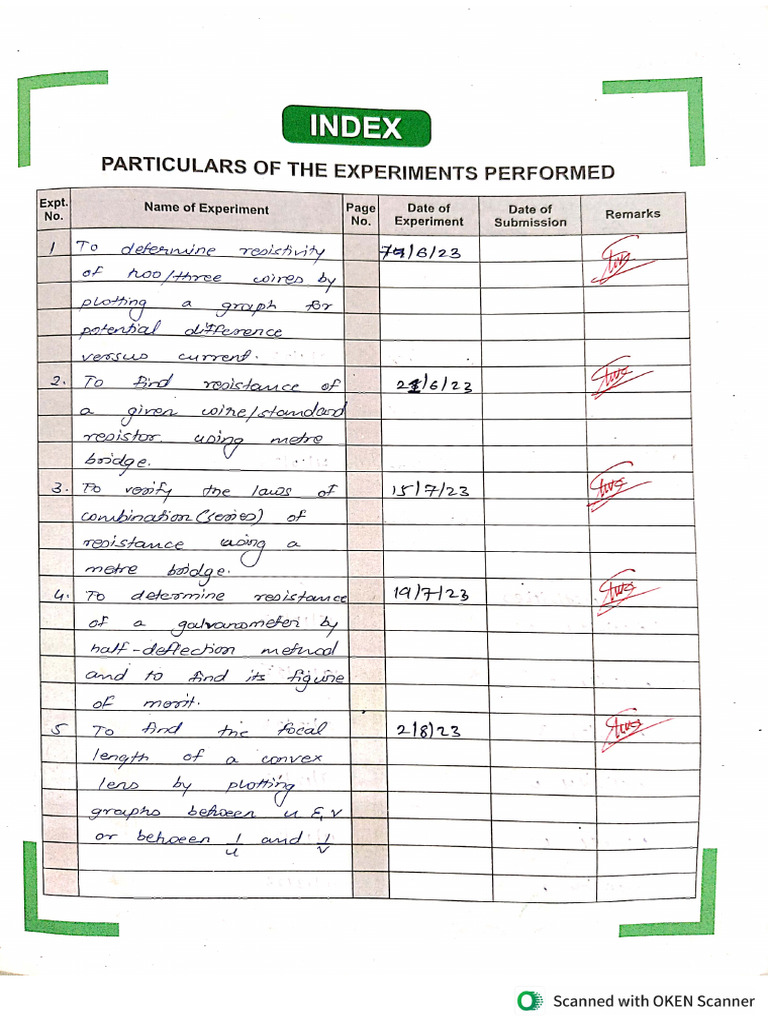 INDEX
PARTICULARS OF THE EXPERIMENTS PERFORMED
Expt. No. Name of Experiment Page No. Date of Experiment Date of Submission Remarks
1 To determine resistivity /6/23
of two/three wires by
plotting a graph for
potential difference
versus current.
2. To find resistance of 21/6/23
a given wire/standard
resistor using metre
bridge.
3. To verify the laws of 15/7/23
combination (series) of
resistance using a
metre bridge.
4. To determine resistance 19/7/23
of a galvanometer by
half-deflection method
and to find its figure
of merit.
5 To find the focal 2/8/23
length of a convex
lens by plotting
graphs between u & v
or between 1/u and 1/v
Scanned with OKEN Scanner